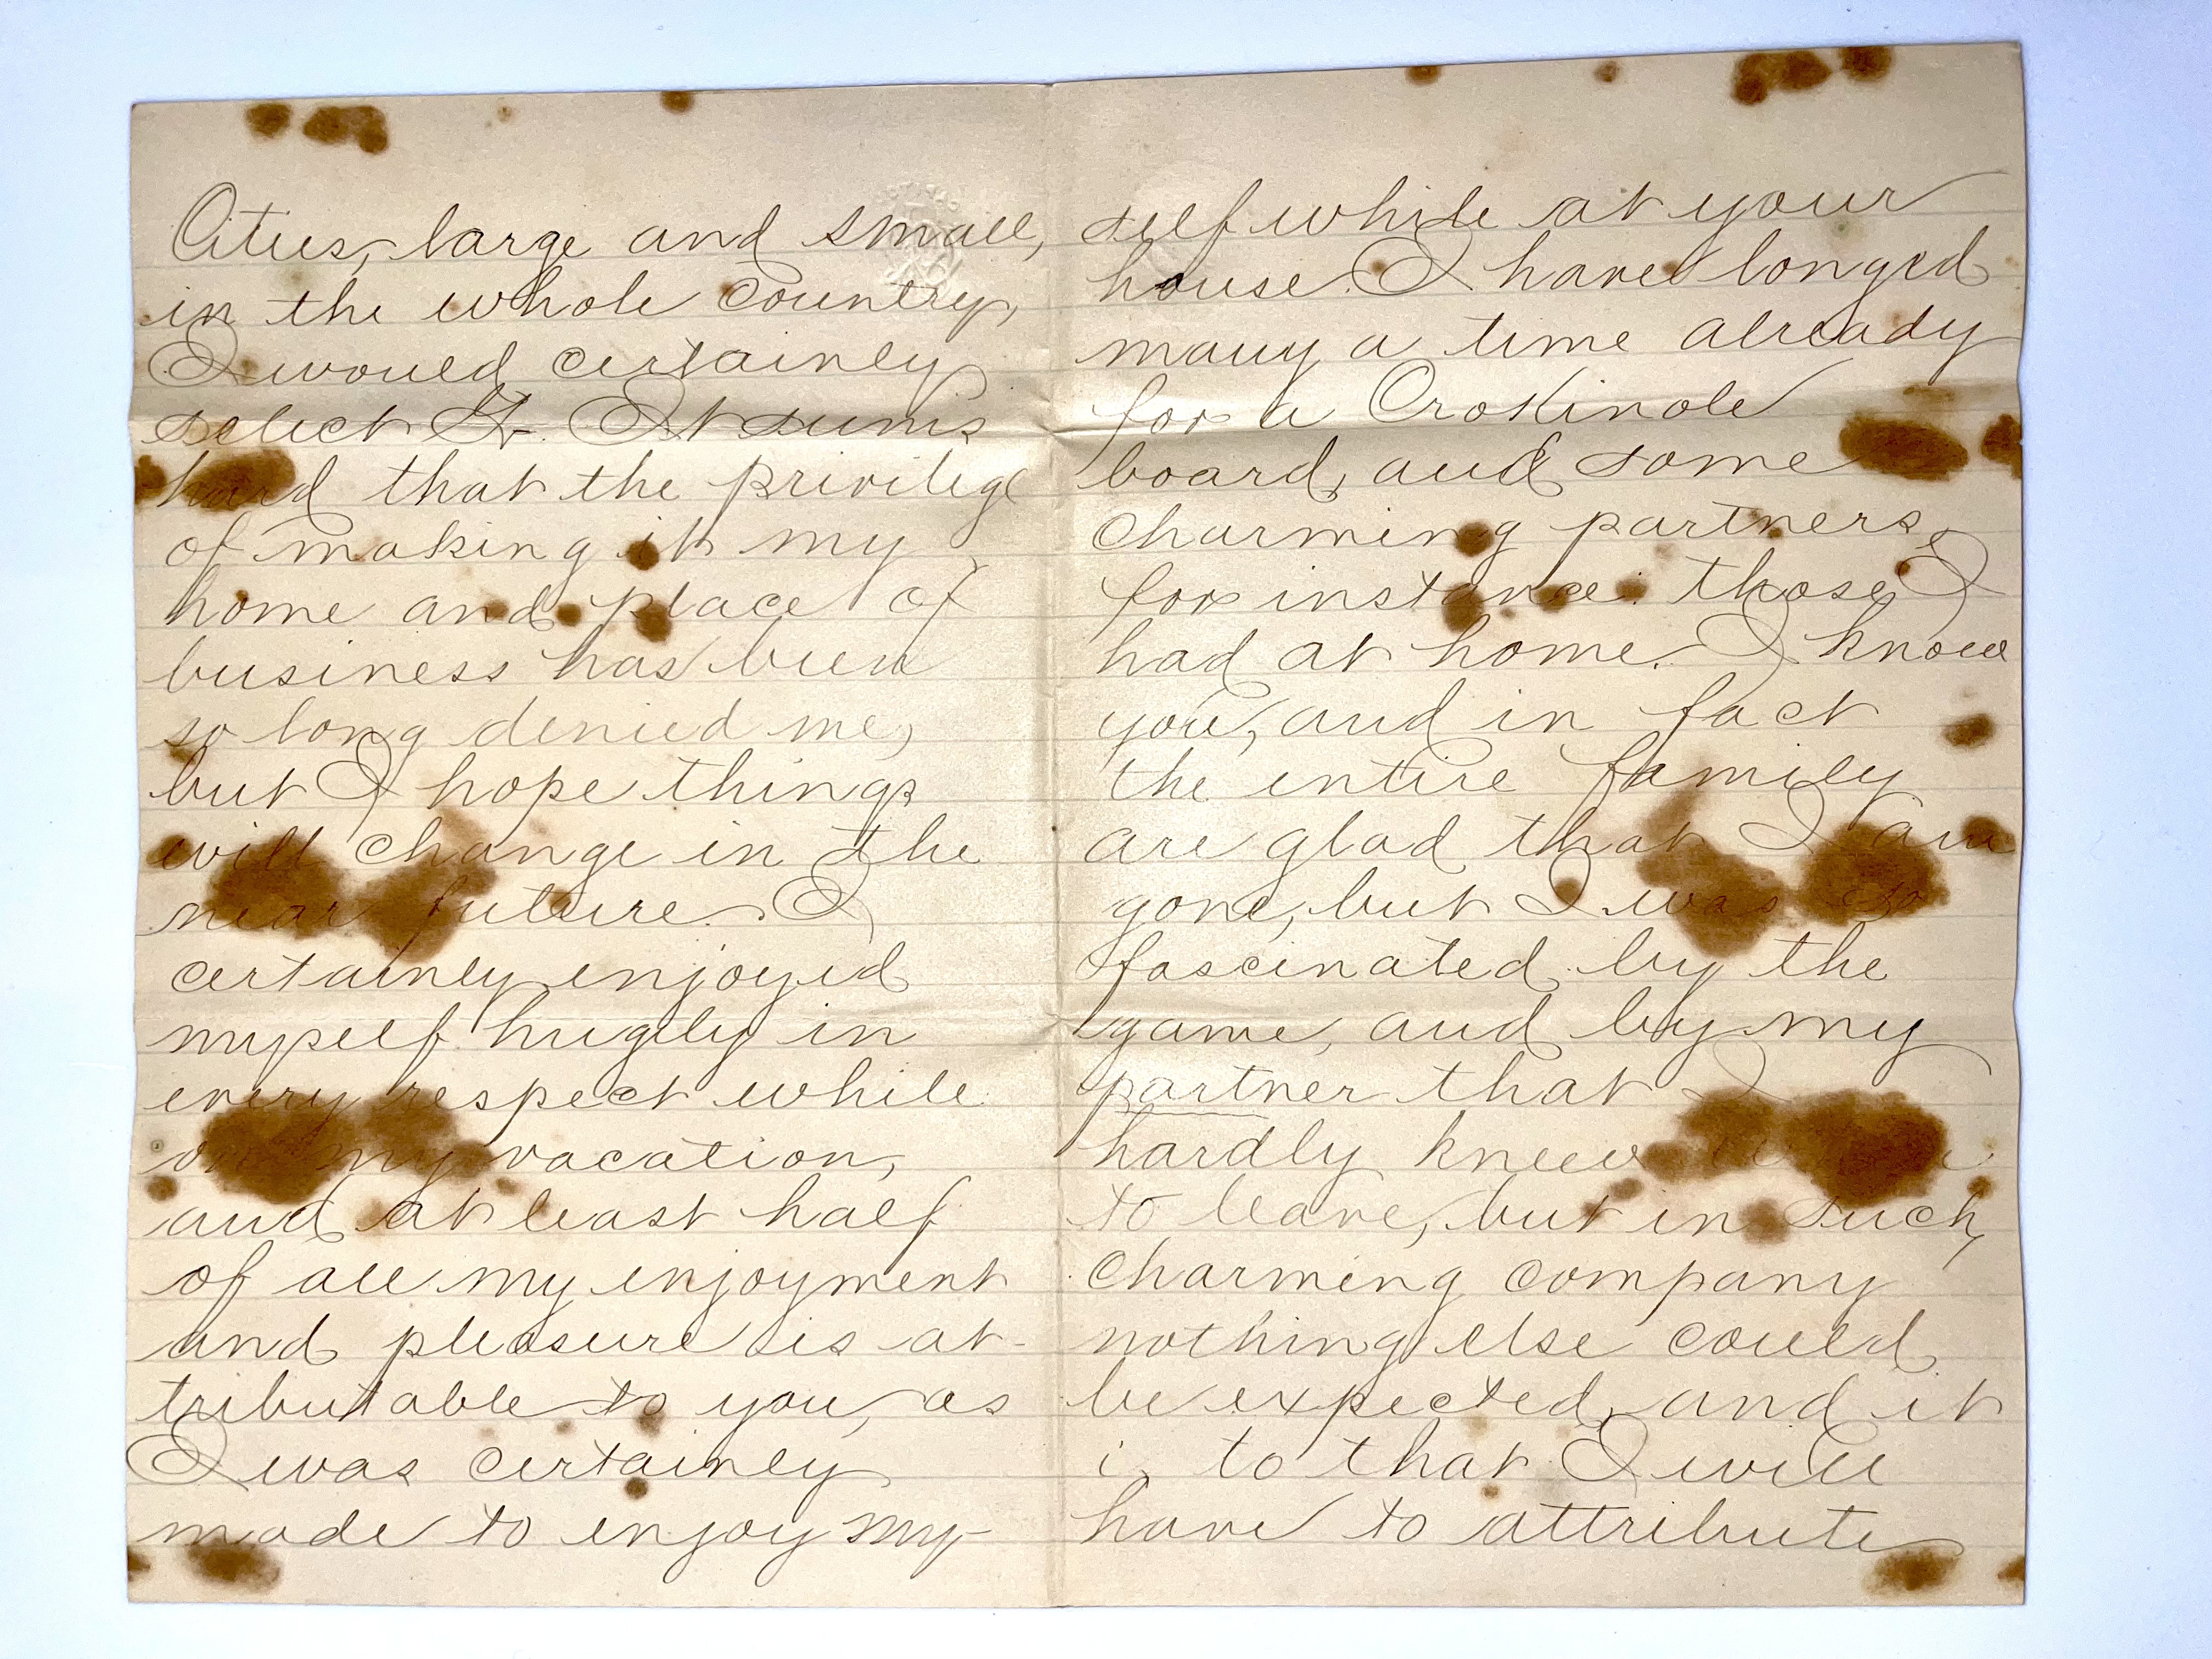 Cities, large and small,
in the whole Country,
I would certainly
select It seems
hard that the privilege
of making it my
home and place of
business has been
so long denied me,
but I hope things
will change in the
near future. I
certainly enjoyed
myself hugely in
every respect while
on my vacation,
and at least half
of all my enjoyment
and pleasure is at-
tributable to you, as
I was certainly
made to enjoy my-
self while at your
house. I have longed
many a time already
for a Crokinole
board, and some
charming partners,
for instance: those I
had at home. I know
you, and in fact
the entire family
are glad that I am
gone, but I was so
fascinated by the
game, and by my
partner that I
hardly knew
to leave, but in such
charming company
nothing else could
be expected, and it
is to that I will
have to attribute